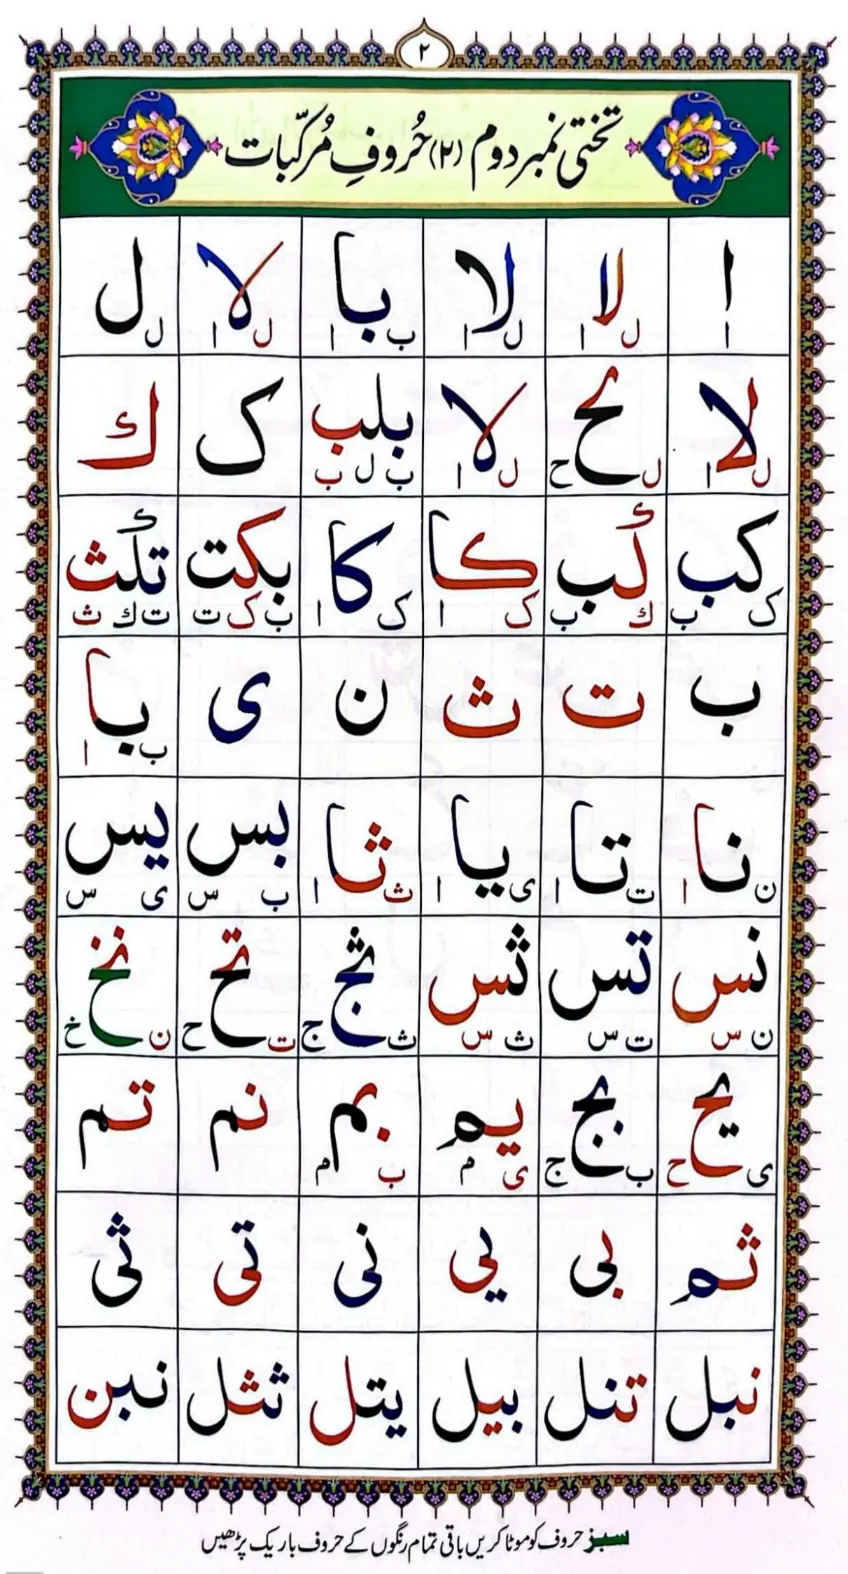 ۲
تختی نمبر دوم (۲) حُروفِ مُرکّبات
ا لا لا با لا ل
ا ل ا ل ا ب ا ل ا ل
لا لح لا بلب ک ك
ل ا ل ح ل ا ب ل ب
کب كب کا کا بکت تكث
ک ب ك ب ک ا ک ا ب ک ت ت ك ث
ب ت ث ن ی با
ب ا
نا تا یا ثا بس یس
ن ا ت ا ی ا ث ا ب س ی س
نس تس ثس ثج تح نخ
ن س ت س ث س ث ج ت ح ن خ
یح بج یم بم نم تم
ی ح ب ج ی م ب م
ثم بی یی نی تی ثی
نبل تنل بیل یتل ثثل نبن
سبز حروف کو موٹا کریں باقی تمام رنگوں کے حروف باریک پڑھیں